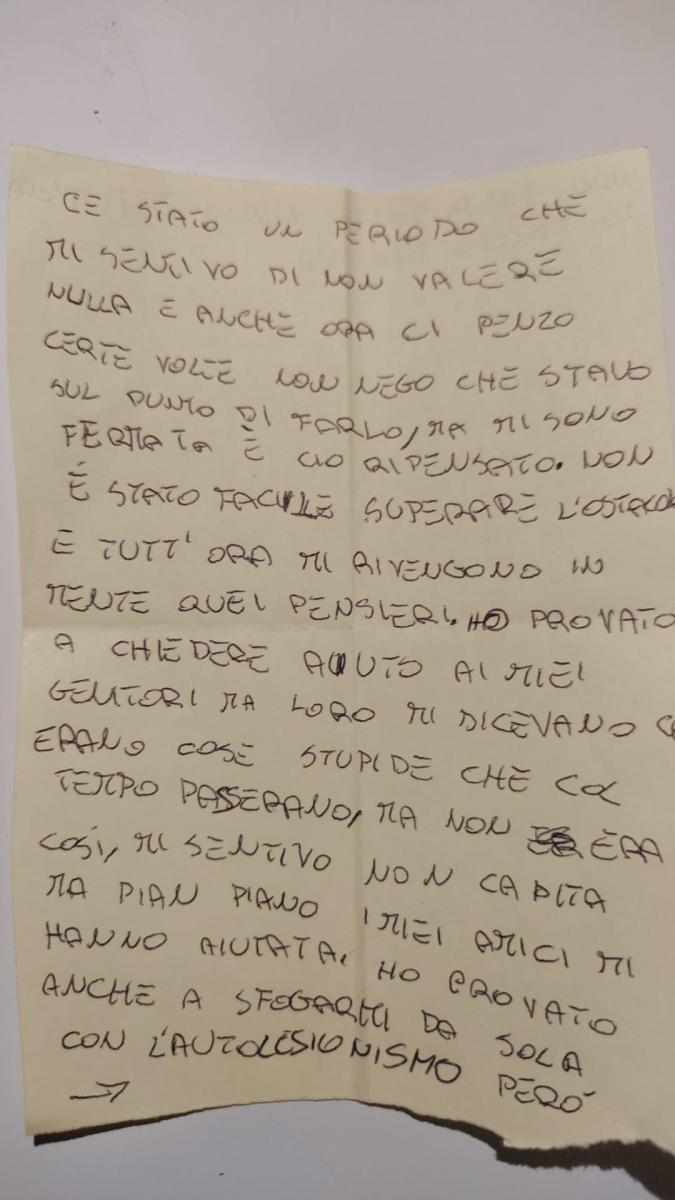 CE STATO UN PERIODO CHE
MI SENTIVO DI NON VALERE
NULLA E ANCHE ORA CI PENZO
CERTE VOLTE NON NEGO CHE STAVO
SUL PUNTO DI FARLO, MA MI SONO
FERMATA È CIO RIPENSATO. NON
É STATO FACILE SUPERARE L'OSTACOL
E TUTT'ORA MI RIVENGONO IN
MENTE QUEI PENSIERI. HO PROVATO
A CHIEDERE AIUTO AI MIEI
GENITORI MA LORO MI DICEVANO C
ERANO COSE STUPIDE CHE COL
TEMPO PASSERANO, MA NON ERA
COSÌ, MI SENTIVO NON CAPITA
MA PIAN PIANO I MIEI AMICI MI
HANNO AIUTATA. HO PROVATO
ANCHE A SFOGARMI DA SOLA
CON L'AUTOLESIONISMO PERÓ
→